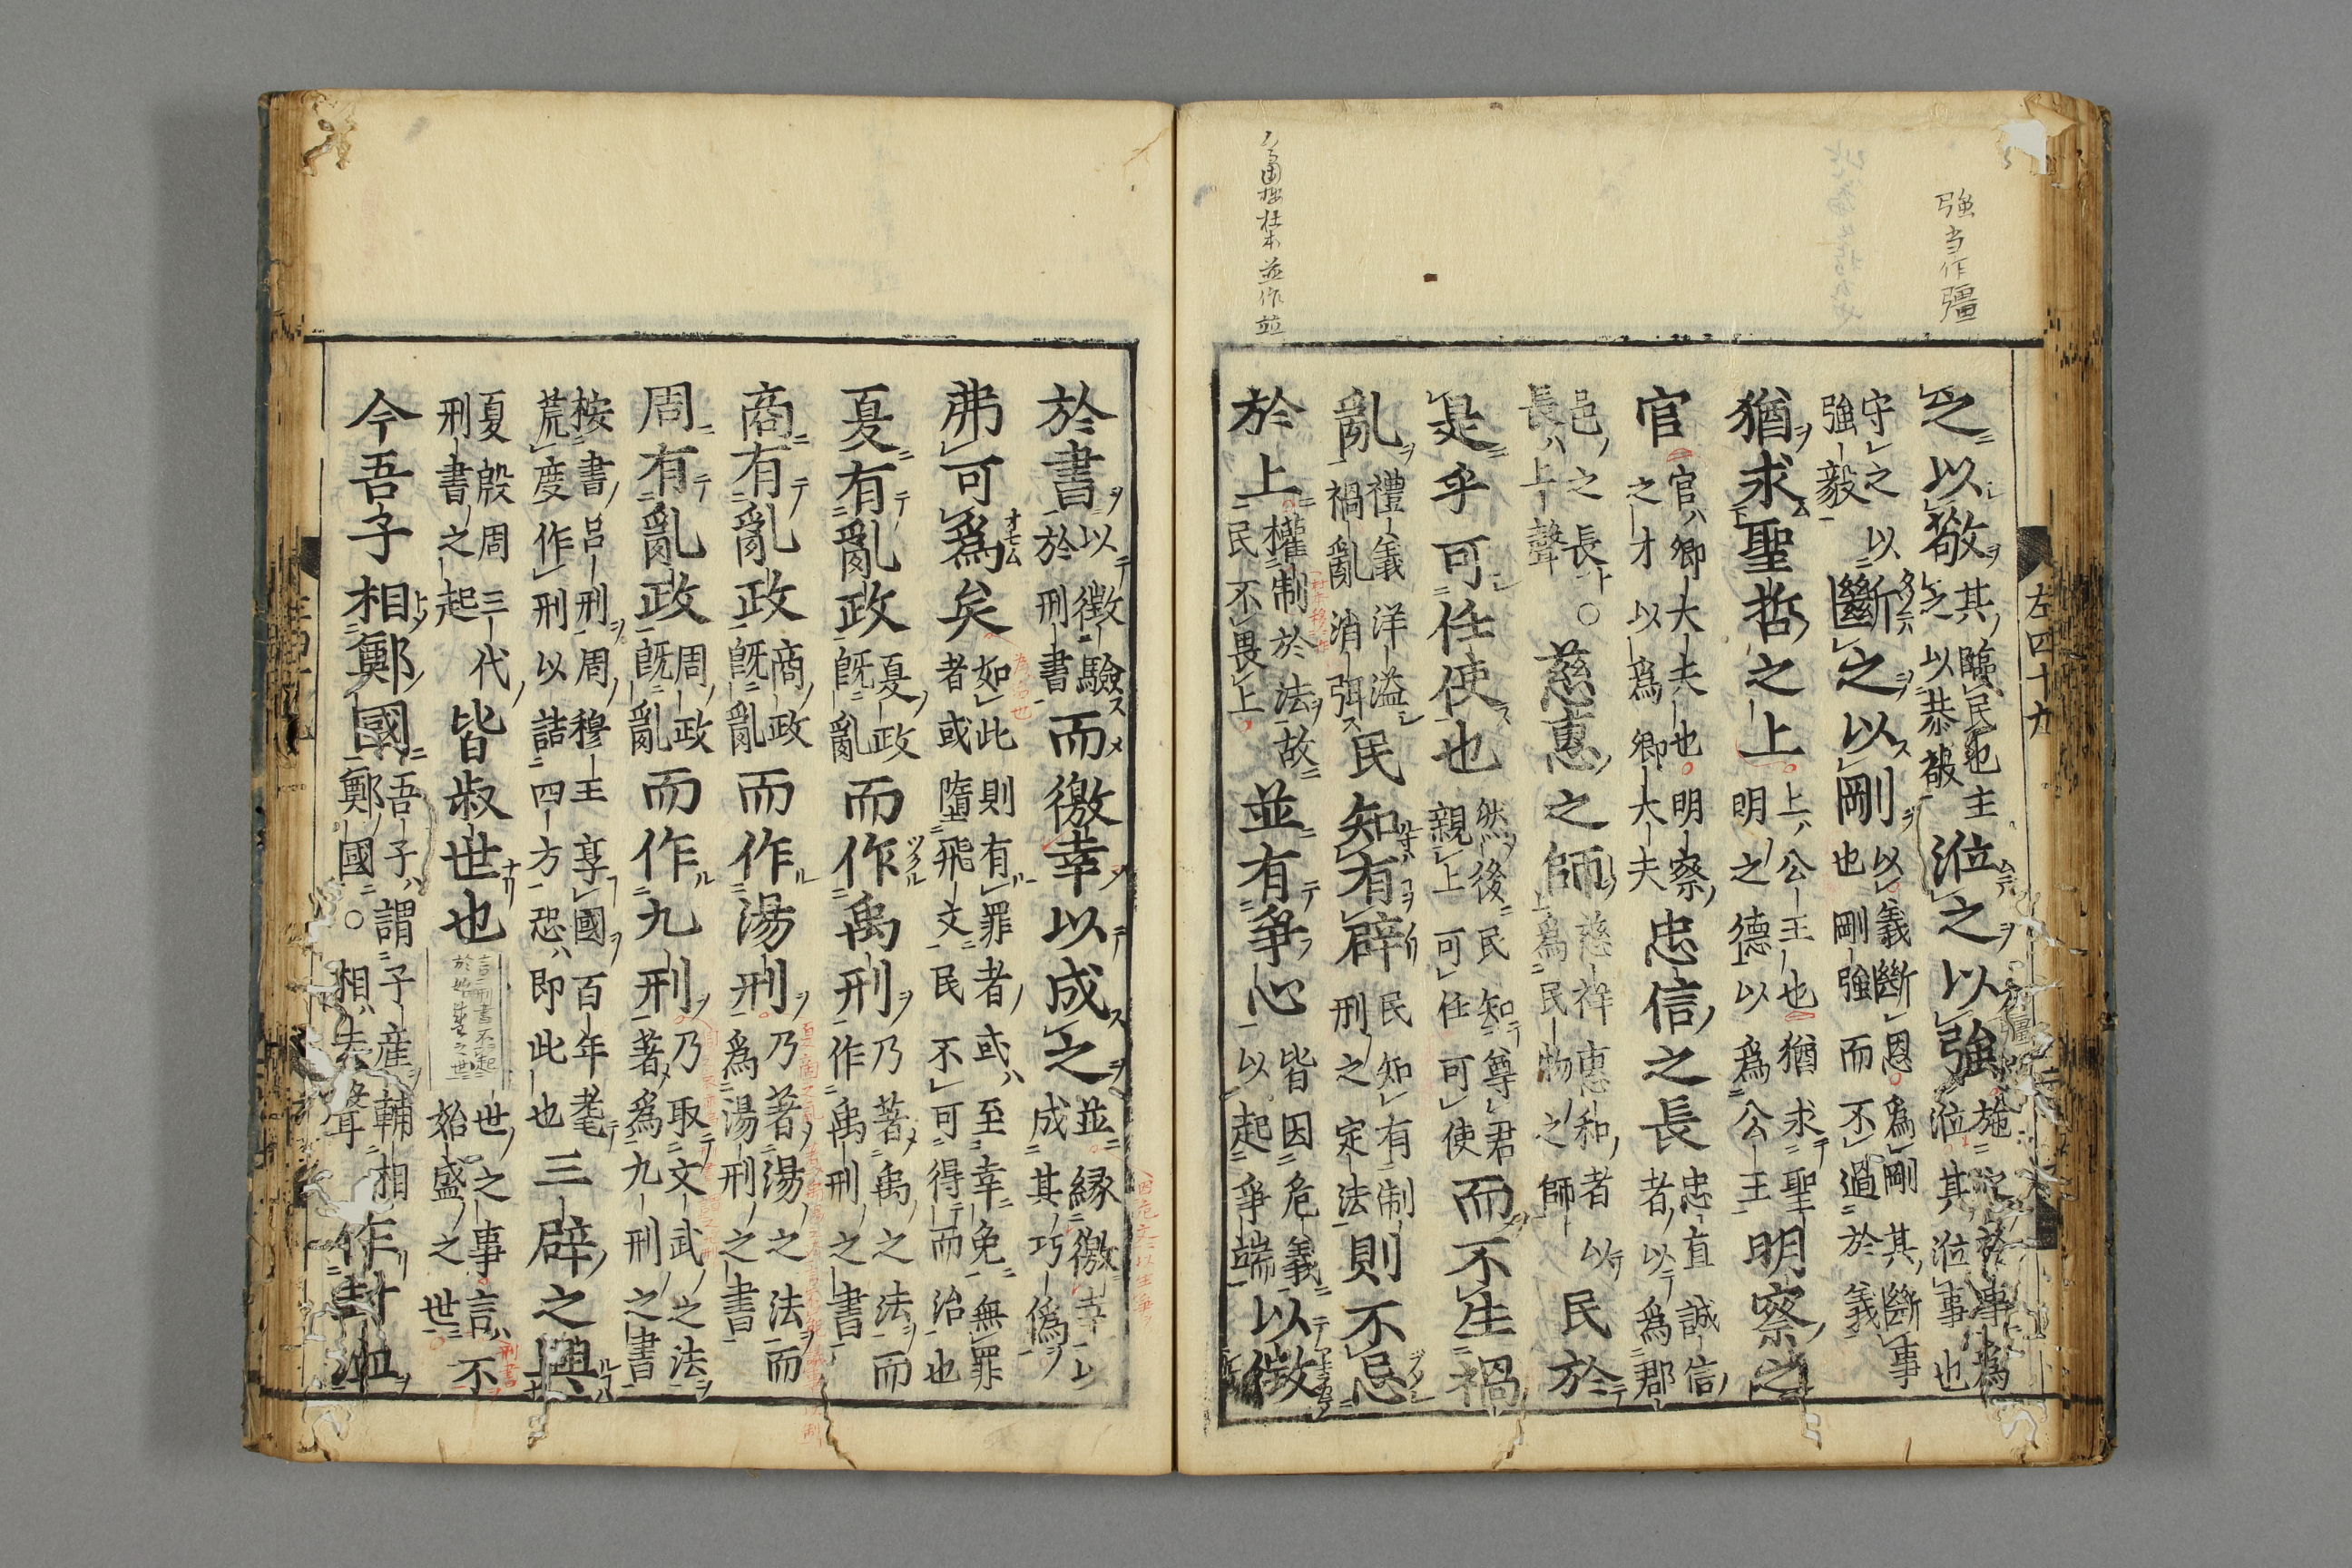 強当作彊
左四十九
之以敬其臨民也主之以恭敬涖之以強施之於事為涖其涖事也
守之以強毅斷之以剛以義斷恩為剛其斷事也剛強而不過於義
猶求聖哲之上上ハ公王也猶求聖明之德以為公王明察之
官官ハ卿大夫也明察之才以為卿大夫忠信之長忠直誠信者以為郡
邑之長長ハ上聲○慈惠之師慈祥惠和者以為民物之師民於
是乎可任使也然後民知尊君親上可任可使而不生禍
亂禮義洋溢禍亂消弭民知有辟民知有制刑之定法則不忌
於上權制於法故民不畏上並有爭心皆因危義以起爭端以徵
並作竝
於書以徵驗於刑書而徼幸以成之並緣徼幸以成其巧偽
弗可為矣如此則有罪者或ハ至幸免無罪者或墮飛文民不可得而治也
夏有亂政夏政既亂而作禹刑乃著禹之法而作禹刑之書
商有亂政商政既亂而作湯刑乃著湯之法而為湯刑之書
周有亂政周政既亂而作九刑乃取文武之法著為九刑之書
按書呂刑周穆王享國百年耄荒度作刑以詰四方恐ハ即此也三辟之興
夏殷周三代刑書之起皆叔世也言刑書不起於始盛之世世之事言ハ不始盛之世
今吾子相鄭國吾子ハ謂子產輔相鄭國○相ハ去聲作封洫